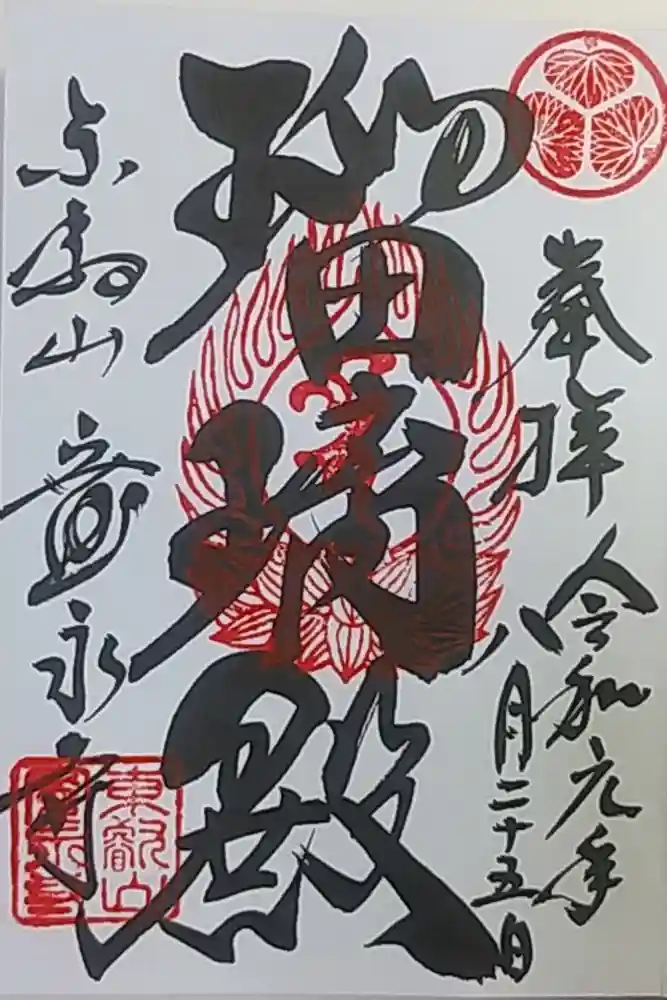 奉拝
令和元年
八月二十五日
瑠璃殿
東叡山 寛永寺
東叡山